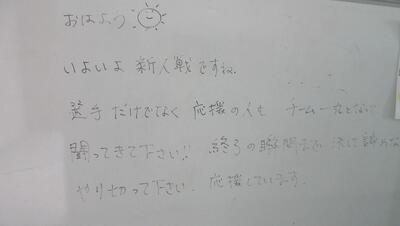 おはよう
いよいよ 新人戦ですね。
選手だけでなく 応援の人も チーム一丸となって
闘ってきて下さい!! 終了の瞬間まで 決して諦めな
やり切って下さい。応援しています。